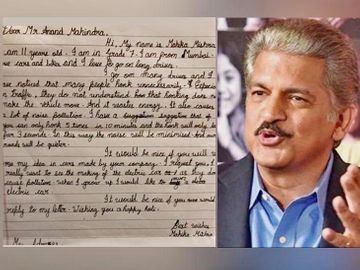 Dear Mr. Anand Mahindra,
Hi, My name is Mahika Mishra
am 11 years old. I am in Grade 7. I am from Mumbai.
we cars and bikes and I love to go on long drives.
I go on many drives and I
noticed that many people honk unnecessarily. & Especia
n traffic, they do not understand how that honking does n
make the vehicle move. And it wastes energy. It also causes
lot of noise pollution. I have a suggestion that of
you can only honk 5 times in 10 minutes and the honk will only be
for 3 seconds. In this way the noise will be minimised and
roads will be quieter.
It would be nice if you will u
me my idea in cars made by your company. I request you, I
really want to see the making of the electric car as they do
cause pollution. When I grow up I would like to
electric car.
It would be nice if you
reply to my letter. Wishing you a happy holi.
Best wishes
Mahika Mishra